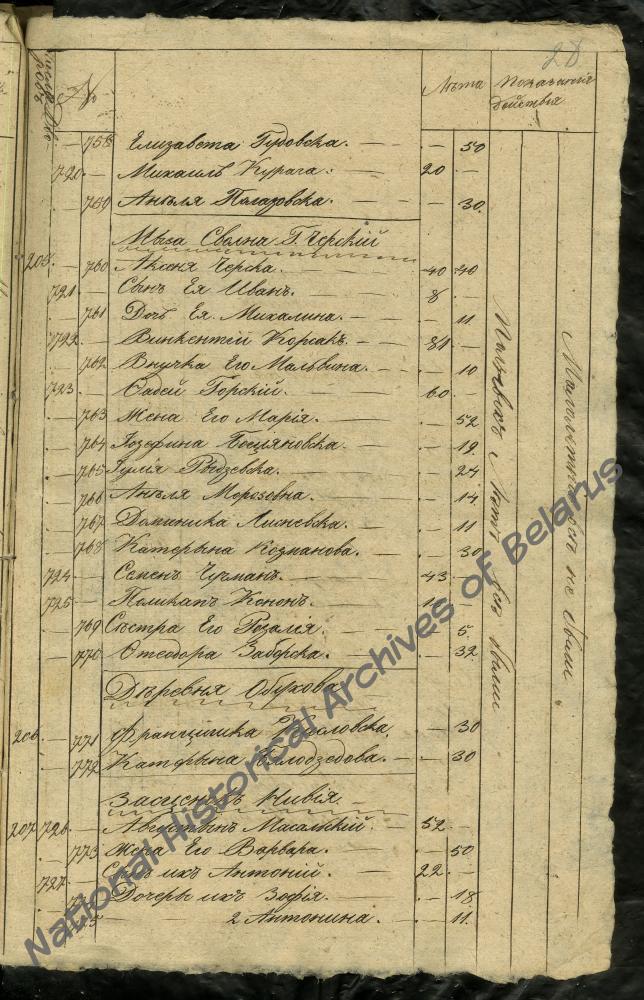 28
Лѣта Показанія Действія
758 Елизавета Гудовска. 50
720 Михаилъ Курага. 20
759 Анѣля 30
Мыза Сволна Г. Черскій
205 760 Аксеня Черска. 40 40
721 Сынъ Ея Иванъ. 8
761 Дочь Ея Михалина. 11
722 Винкентій Корсакъ. 81
762 Внучка Его Мальвина. 10
723 Фадей Горскій. 60
763 Жена Его Марія. 52
764 Іозефина 19
765 Іулія Рыдзевска. 24
766 Анѣля Морозовна. 14
767 Доминика Лисневска. 11
768 Катерына Козманова. 30
724 Семенъ 43
725 Поликапъ Кононъ.
769 Сѣстра Его Розалія. 5
770 Отеодора Заборска. 32
Дѣревня Обухова
206 771 Францишка 30
772 Катерына 30
Засценокъ Нивія
207 726 Августынъ Масальскій. 52
773 Жена Его Варвара. 50
727 Сынъ ихъ Антоній. 22
Дочеры ихъ Зофія. 18
2 Антонина. 11
Малолѣтность не были
National Historical Archives of Belarus